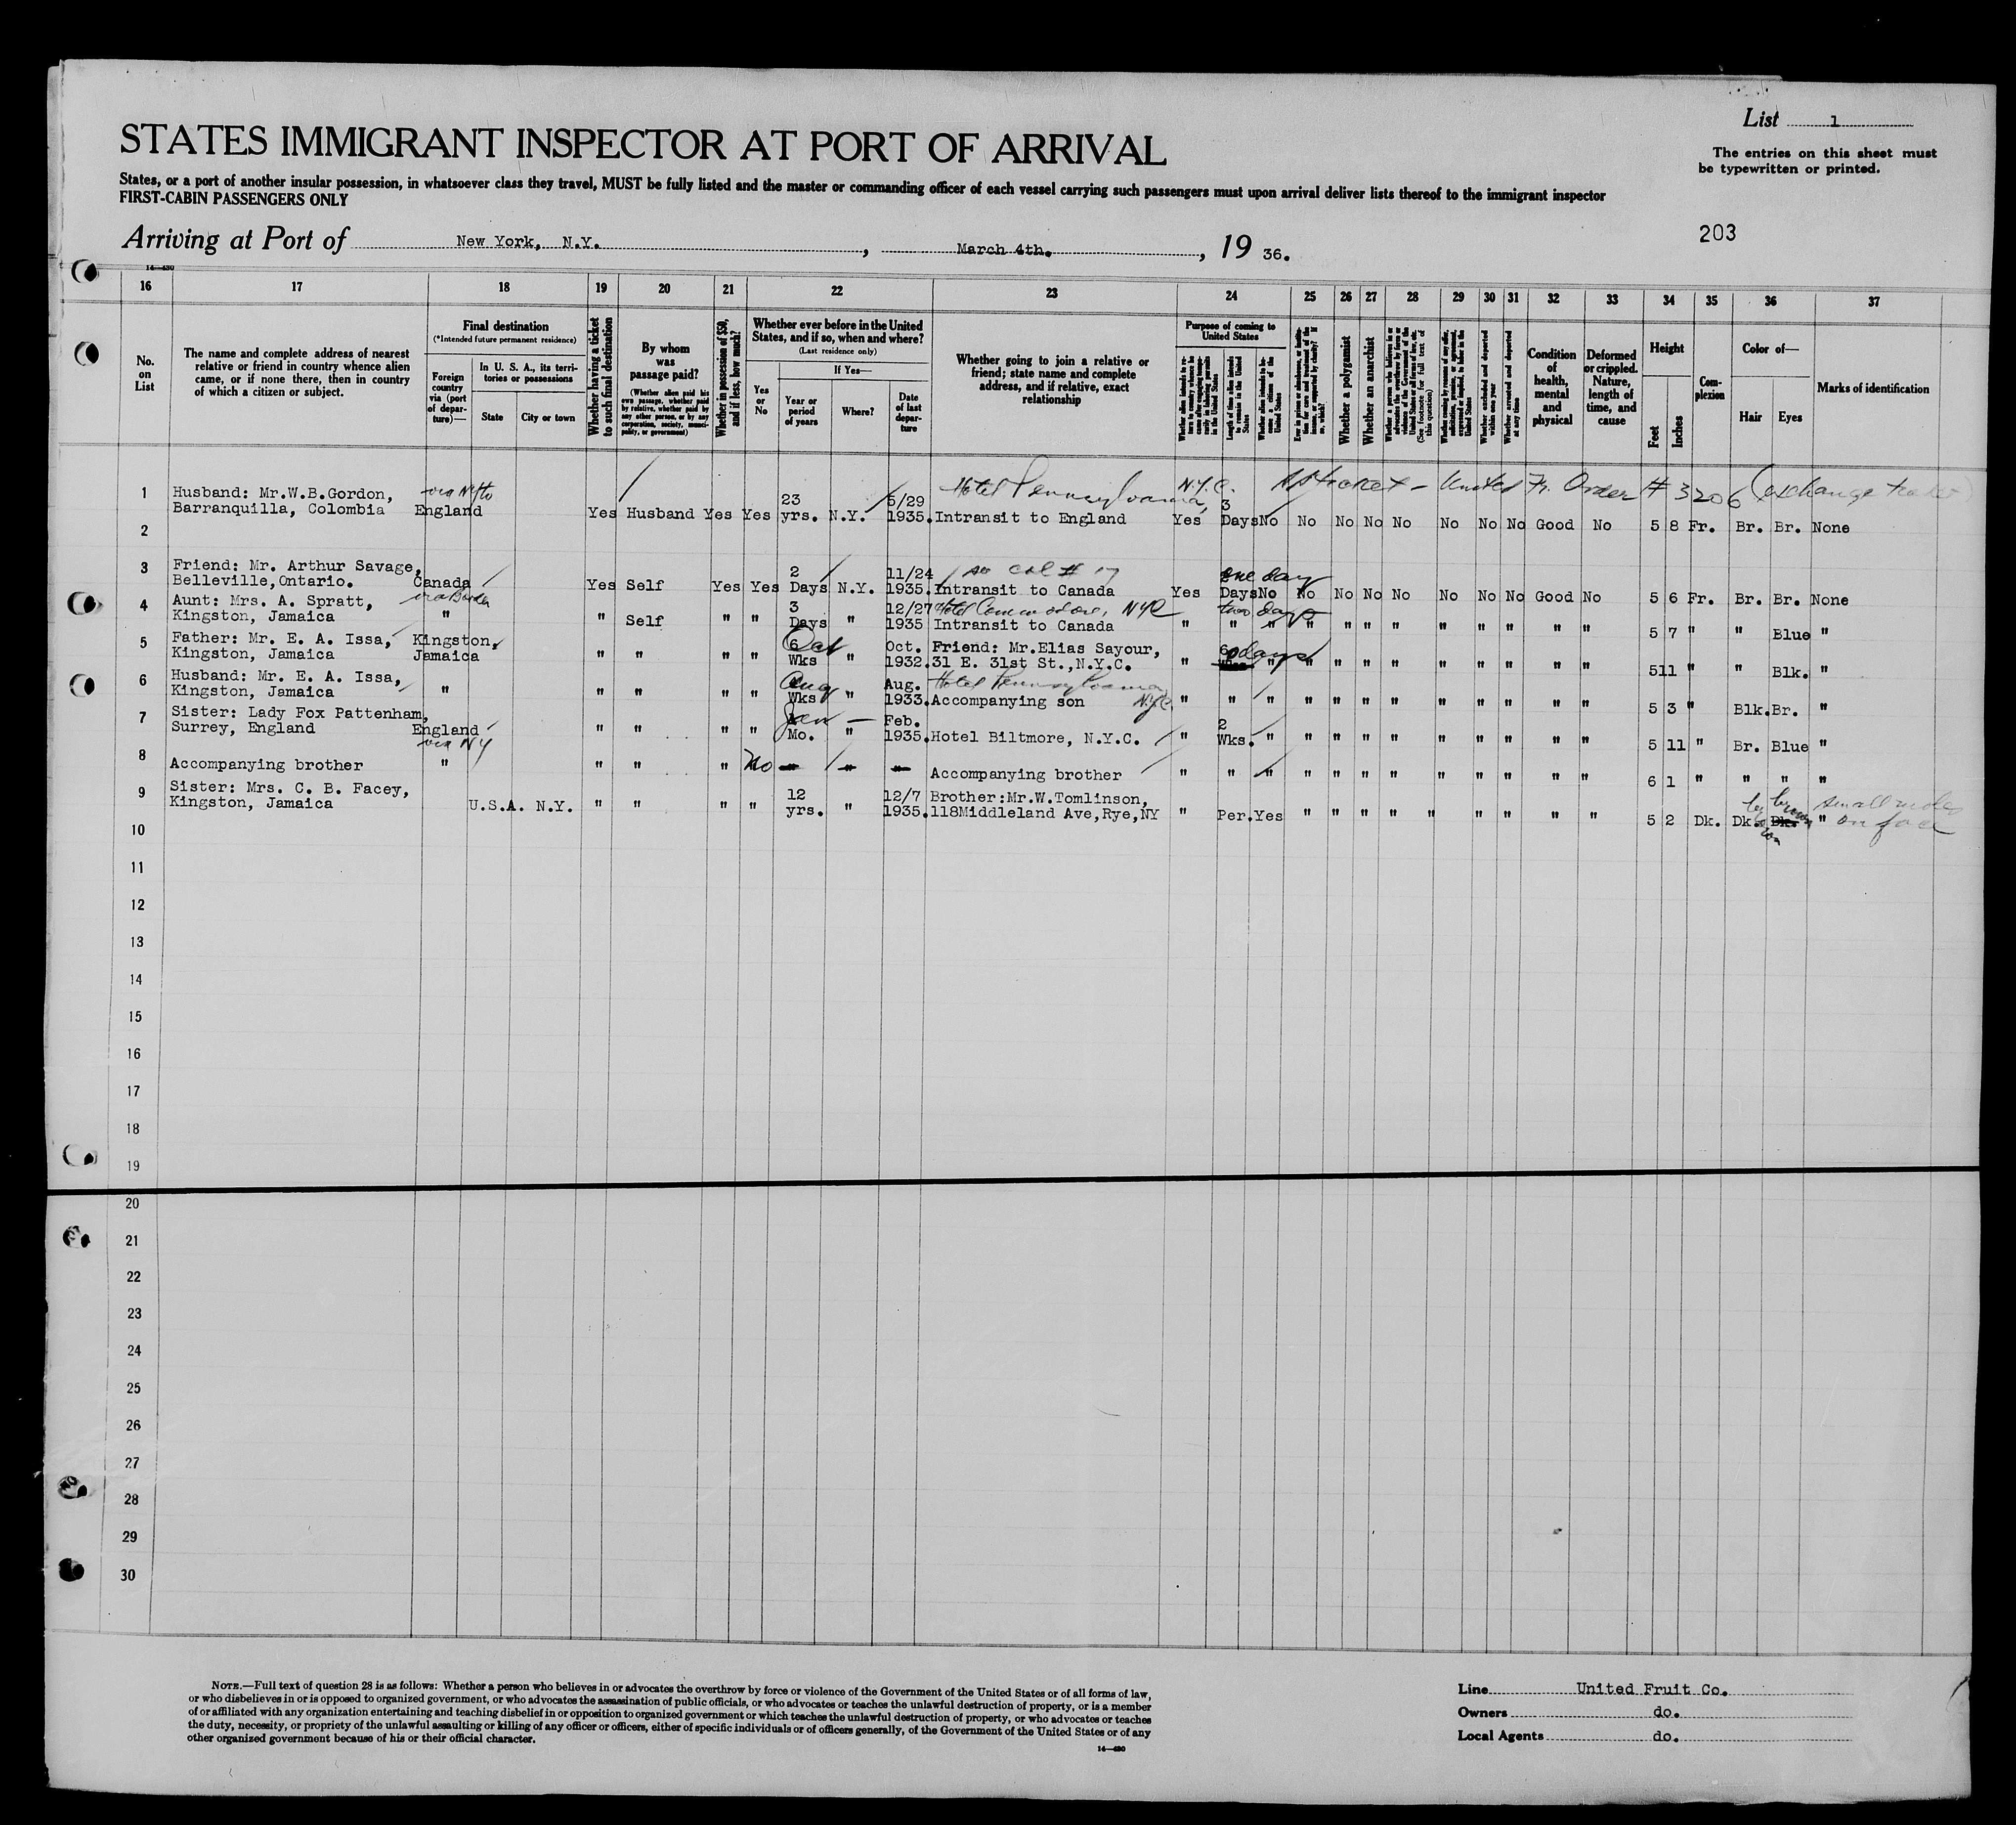 List 1
STATES IMMIGRANT INSPECTOR AT PORT OF ARRIVAL
The entries on this sheet must
be typewritten or printed.
States, or a port of another insular possession, in whatsoever class they travel, MUST be fully listed and the master or commanding officer of each vessel carrying such passengers must upon arrival deliver lists thereof to the immigrant inspector
FIRST-CABIN PASSENGERS ONLY
Arriving at Port of New York, N.Y. , March 4th. , 19 36.
203
14—430
16 17 18 19 20 21 22 23 24 25 26 27 28 29 30 31 32 33 34 35 36 37
No. on List
The name and complete address of nearest
relative or friend in country whence alien
came, or if none there, then in country
of which a citizen or subject.
Final destination
(*Intended future permanent residence)
Foreign country via (port of departure)—
In U. S. A., its territories or possessions
State City or town
Whether having a ticket to such final destination
By whom was passage paid?
(Whether alien paid his own passage, whether paid by relative, whether paid by any other person, or by any corporation, society, municipality, or government)
Whether in possession of $50, and if less, how much?
Whether ever before in the United States, and if so, when and where?
(Last residence only)
Yes or No
If Yes—
Year or period of years
Where?
Date of last departure
Whether going to join a relative or
friend; state name and complete
address, and if relative, exact
relationship
Purpose of coming to United States
Length of time alien intends to remain in the United States
Whether alien intends to become a citizen of the United States
Whether a polygamist
Whether an anarchist
(See footnote for full text of this question)
Whether arrested and deported at any time
Condition of health, mental and physical
Deformed or crippled. Nature, length of time, and cause
Height
Feet Inches
Complexion
Color of—
Hair Eyes
Marks of identification
Hotel Pennsylvania, N.Y.C. United Fr. Order # 3206 (exchange
1 Husband: Mr.W.B.Gordon, 23 5/29 3
Barranquilla, Colombia England Yes Husband Yes Yes yrs. N.Y. 1935. Intransit to England Yes Days No No No No No No No No Good No 5 8 Fr. Br. Br. None
2
3 Friend: Mr. Arthur Savage, 2 11/24 one day
Belleville,Ontario. Canada Yes Self Yes Yes Days N.Y. 1935. Intransit to Canada Yes Days No No No No No No No No Good No 5 6 Fr. Br. Br. None
4 Aunt: Mrs. A. Spratt, 3 12/27 Hotel Commodore, NYC two days
Kingston, Jamaica " " Self " " Days " 1935 Intransit to Canada " " " " " " " " " " " " 5 7 " " Blue "
5 Father: Mr. E. A. Issa, Kingston, 6 Oct Oct. Friend: Mr.Elias Sayour, 60 days
Kingston, Jamaica Jamaica " " " " Wks " 1932. 31 E. 31st St.,N.Y.C. " " " " " " " " " " " 5 11 " " Blk. "
6 Husband: Mr. E. A. Issa, Aug Aug. Hotel Pennsylvania
Kingston, Jamaica " " " " " Wks " 1933. Accompanying son N.Y.C. " " " " " " " " " " " " 5 3 " Blk. Br. "
7 Sister: Lady Fox Pattenham, Jan Feb. 2
Surrey, England England " " " " Mo. " 1935. Hotel Biltmore, N.Y.C. " Wks. " " " " " " " " " " 5 11 " Br. Blue "
via NY
8 Accompanying brother " " " " No " " " Accompanying brother " " " " " " " " " " " " 6 1 " " " "
9 Sister: Mrs. C. B. Facey, 12 12/7 Brother:Mr.W.Tomlinson, brown
Kingston, Jamaica U.S.A. N.Y. " " " " yrs. " 1935. 118Middleland Ave,Rye,NY " Per. Yes " " " " " " " " " 5 2 Dk. Dk. Dk. " small on face
10
11
12
13
14
15
16
17
18
19
20
21
22
23
24
25
26
27
28
29
30
NOTE.—Full text of question 28 is as follows: Whether a person who believes in or advocates the overthrow by force or violence of the Government of the United States or of all forms of law,
or who disbelieves in or is opposed to organized government, or who advocates the assassination of public officials, or who advocates or teaches the unlawful destruction of property, or is a member
of or affiliated with any organization entertaining and teaching disbelief in or opposition to organized government or which teaches the unlawful destruction of property, or who advocates or teaches
the duty, necessity, or propriety of the unlawful assaulting or killing of any officer or officers, either of specific individuals or of officers generally, of the Government of the United States or of any
other organized government because of his or their official character.
14—430
Line United Fruit Co.
Owners do.
Local Agents do.